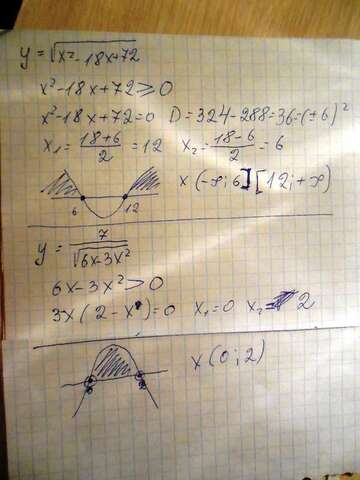 y = √x² - 18x + 72
x² - 18x + 72 ≥ 0
x² - 18x + 72 = 0 D = 324 - 288 = 36 = (± 6)²
x₁ = 18 + 6 / 2 = 12 x₂ = 18 - 6 / 2 = 6
6 12 x (-∞; 6] [12; +∞)
y = 7 / √6x - 3x²
6x - 3x² > 0
3x (2 - x) = 0 x₁ = 0 x₂ = 2
0 2 x (0; 2)